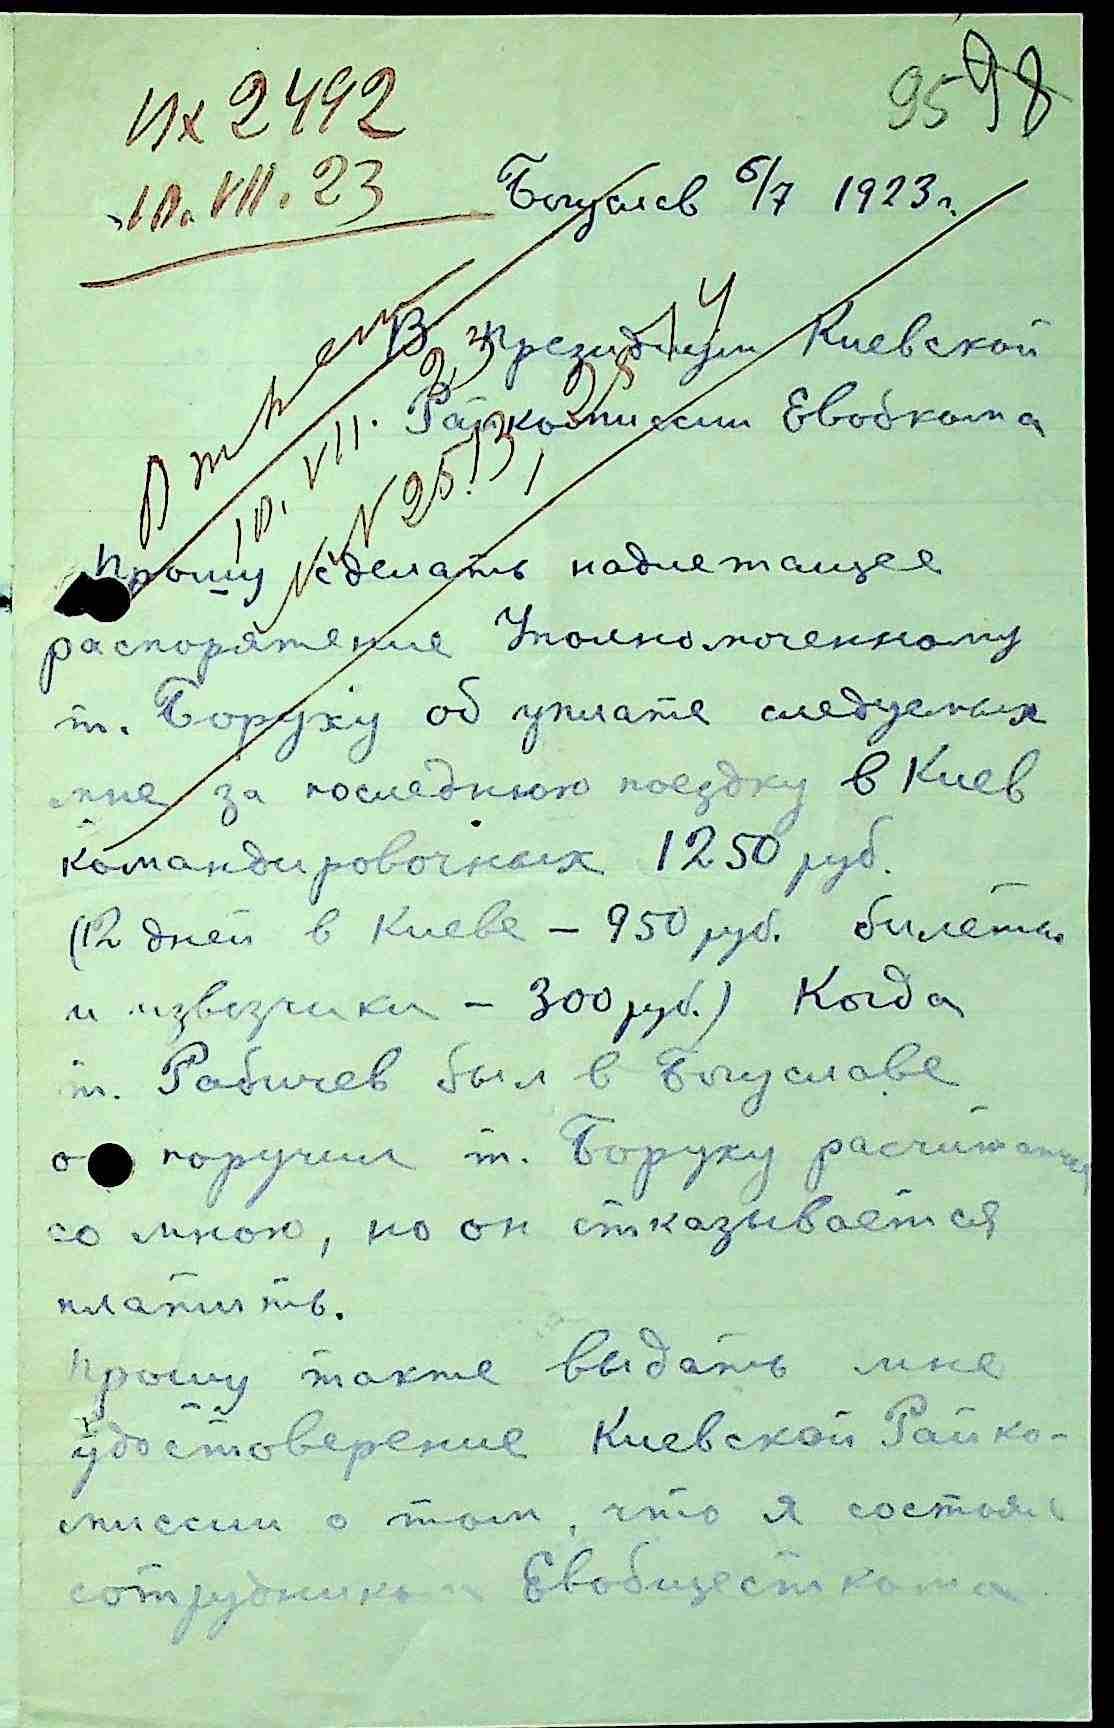 Их 2492
9598
10.VII.23
Богуслав 6/7 1923 г.
В Президиум Киевской
Райкомиссии Евобкома
10.VII.23
№№ 2513,
Прошу сделать надлежащее
распоряжение Уполномоченному
т. Боруху об уплате следуемых
мне за последнюю поездку в Киев
командировочных 1250 руб.
(12 дней в Киеве – 950 руб. билеты
и извозчики – 300 руб.) Когда
т. Рабичев был в Богуславе
о поручил т. Боруху расчитаться
со мною, но он отказывается
платить.
Прошу также выдать мне
удостоверение Киевской Райко-
миссии о том, что я состоял
сотрудником Евобщесткома